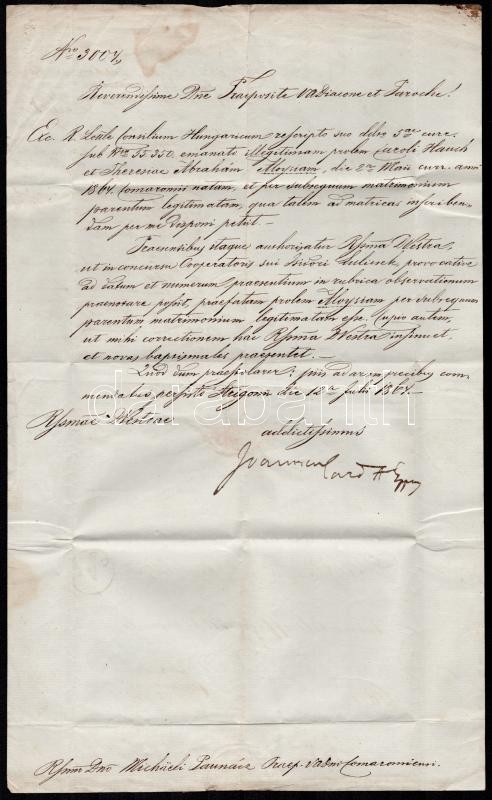 Nro 3004
Reverendissime Dne Praeposite VADiacone et Paroche!
Exc. R. Loc. Consilium Hungaricum rescripto suo ddto 5ae curr.
sub Nro emanato illegitimam prolem Jacobi Hauch
et Theresiae Abraham Aloysiam, die 2da Maii curr. anni
1864 Comaromii natam, et per subsequum matrimonium
parentum legitimatam, qua talem ad matricas inscriben-
dam per me disponi petiit.—
Praesentibus itaque authorizatur Rssma Dvestra
ut in concursu Cooperatoris sui provocative
ad datum et numerum praesentium in rubrica observationum
praenotare possit, praefatam prolem Aloysiam per subsequum
parentum matrimonium legitimatam esse. Cupio autem,
ut mihi correctionem hac Rssma Dvestra insinuet,
et novas baptismales praesentet.—
Quod dum praestolarer; piis ad aram precibus com-
mendatus persisto Strigonii die 12a Julii 1864.—
Rssmae Dvestrae
addictissimus
Joannes Card AEppus
darabanth
Rssmo Dno Michaeli Praep. VADno Comaromiensi.